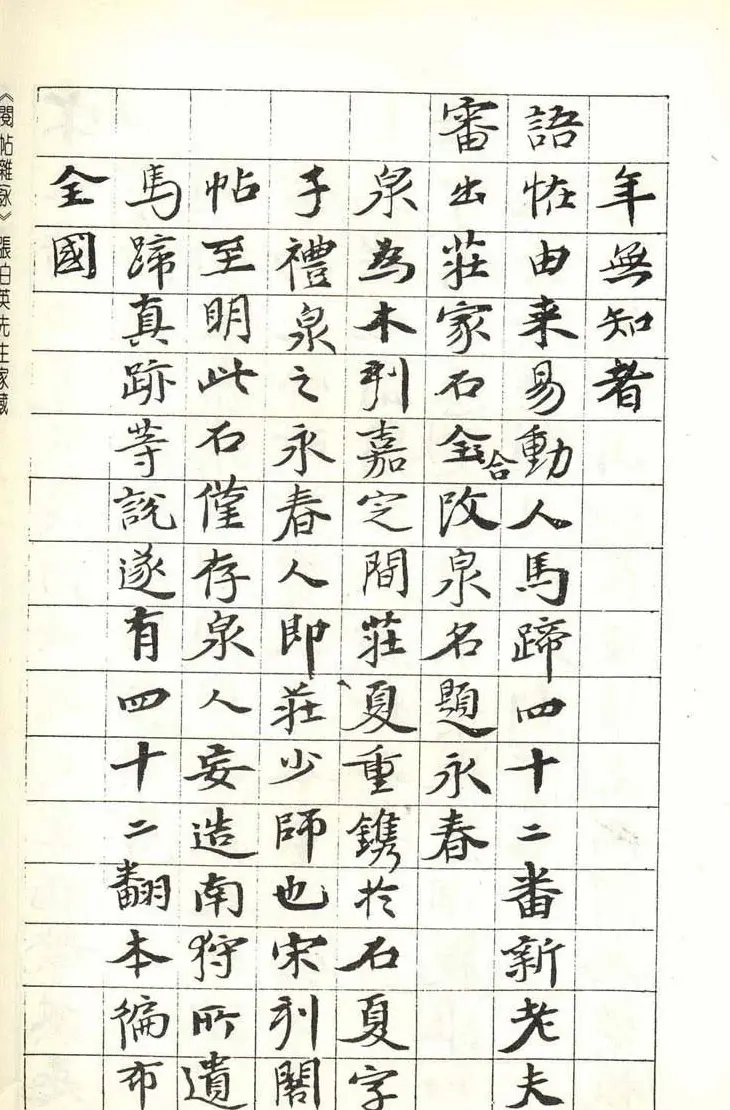 年無知者
語恠由来易動人馬蹄四十二番新老夫
審出莊家石合全改泉名題永春
泉為木刊嘉定間莊夏重鐫於石夏字
子禮泉之永春人即莊少師也宋刊閣
帖至明此石僅存泉人妄造南狩所遺
馬蹄真跡等說遂有四十二翻本徧布
全國
《閱帖雜詠》張伯英先生家藏